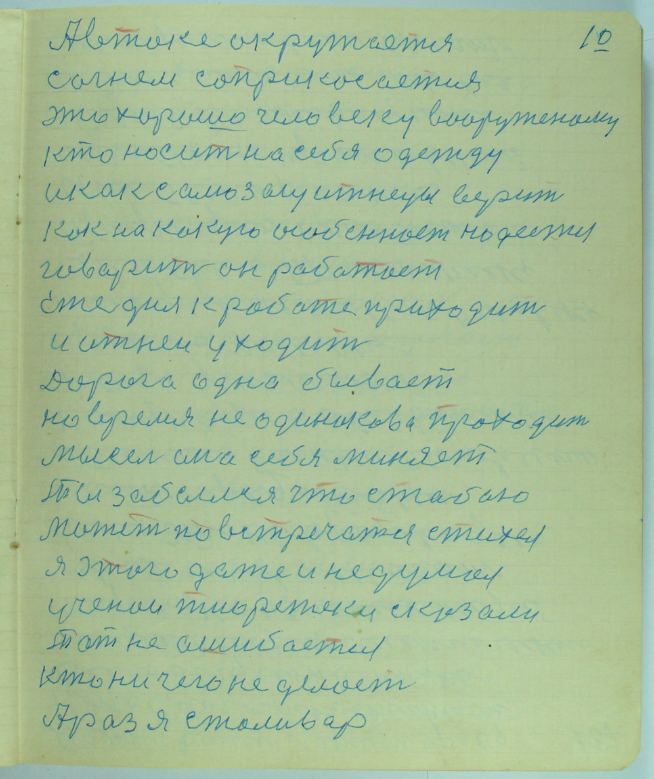 10
А втоке окружается
согнем соприкосается
это хорошо человеку вооруженому
кто носит на себя одежду
и как самозащитнецы верит
как на какую особенност надеятся
говарит он работает
Ежедня к работе приходит
и отнеи уходит
Дорога одна бывает
но время не одинакова проходит
мысел она себя миняет
Ты забылся что стабаю
может повстречатся стихея
я этого даже и не думал
ученои тиоретеки сказали
Тот не ошибается
кто ничего не делает
А раз я сталивар